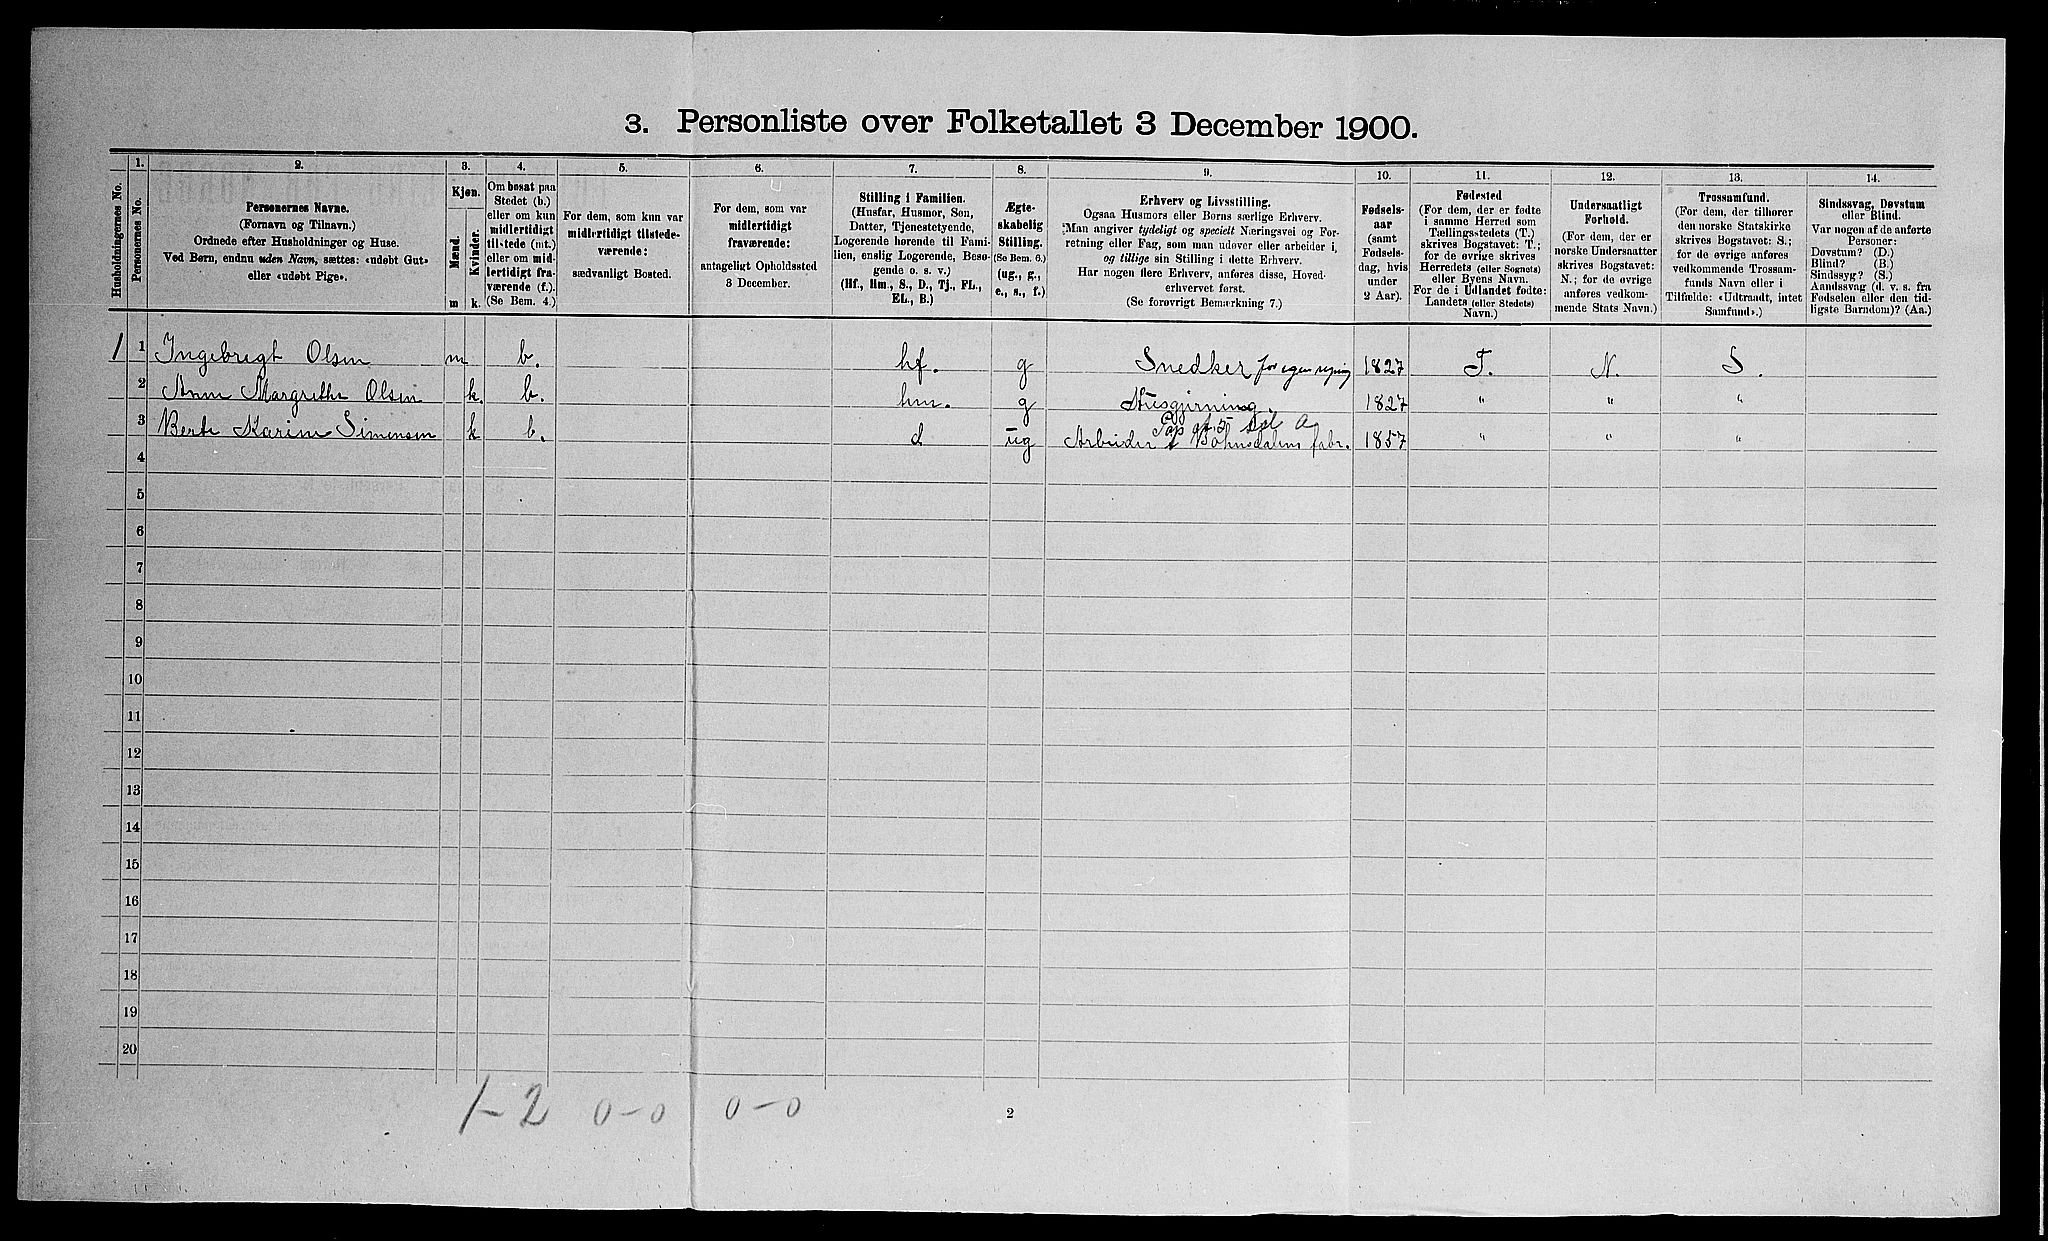 3. Personliste over Folketallet 3 December 1900.
Husholdningernes No.
1.
Personernes No.
2.
Personernes Navne.
(Fornavn og Tilnavn.)
Ordnede efter Husholdninger og Huse.
Ved Børn, endnu uden Navn, sættes: «udøbt Gut»
eller «udøbt Pige».
3.
Kjøn.
Mænd.
Kvinder.
m k.
4.
Om bosat paa
Stedet (b.)
eller om kun
midlertidigt
tilstede (mt.)
eller om mid-
lertidigt fra-
værende (f.).
(Se Bem. 4.)
5.
For dem, som kun var
midlertidigt tilstede-
værende:
sædvanligt Bosted.
6.
For dem, som var
midlertidigt
fraværende:
antageligt Opholdssted
3 December.
7.
Stilling i Familien.
(Husfar, Husmor, Søn,
Datter, Tjenestetyende,
Logerende hørende til Fami-
lien, enslig Logerende, Besø-
gende o. s. v.)
(Hf., Hm., S., D., Tj., FL.,
EL., B.)
8.
Ægte-
skabelig
Stilling.
(Se Bem. 6.)
(ug., g.,
e., s., f.)
9.
Erhverv og Livsstilling.
Ogsaa Husmors eller Børns særlige Erhverv.
Man angiver tydeligt og specielt Næringsvei og For-
retning eller Fag, som man udøver eller arbeider i,
og tillige sin Stilling i dette Erhverv.
Har nogen flere Erhverv, anføres disse, Hoved-
erhvervet først.
(Se forøvrigt Bemærkning 7.)
10.
Fødsels-
aar
(samt
Fødsels-
dag, hvis
under
2 Aar).
11.
Fødested
(For dem, der er fødte
i samme Herred som
Tællingsstedets (T.)
skrives Bogstavet: T.;
for de øvrige skrives
Herredets (eller Sognets)
eller Byens Navn.
For de i Udlandet fødte:
Landets (eller Stedets)
Navn.)
12.
Undersaatligt
Forhold.
(For dem, der er
norske Undersaatter
skrives Bogstavet:
N.; for de øvrige
anføres vedkom-
mende Stats Navn.)
13.
Trossamfund.
(For dem, der tilhører
den norske Statskirke
skrives Bogstavet: S.;
for de øvrige anføres
vedkommende Trossam-
funds Navn eller i
Tilfælde: «Udtraadt, intet
Samfund».)
14.
Sindssvag, Døvstum
eller Blind.
Var nogen af de anførte
Personer:
Døvstum? (D.)
Blind? (B.)
Sindssyg? (S.)
Aandssvag (d. v. s. fra
Fødselen eller den tid-
ligste Barndom)? (Aa.)
1 1 Ingebregt Olsen m b. hf. g Snedker for egen regning 1827 T. N. S.
2 Anne Margrethe Olsen k. b. hm. g Husgjirning 1827 " " "
3 Berte Karine Simensen k b. d ug Arbeider Bøhnsdalens fabr. 1857 " " "
4
5
6
7
8
9
10
11
12
13
14
15
16
17
18
19
20
1-2 0-0 0-0
2